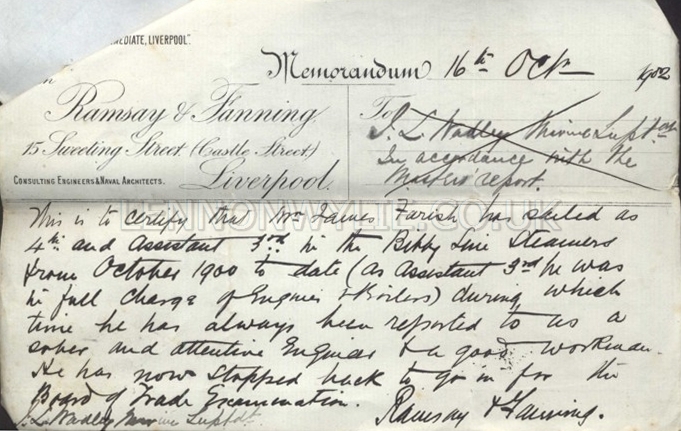 MEDIATE, LIVERPOOL".
Memorandum 16th Oct 1902
Ramsay & Fanning,
15 Sweeting Street. (Castle Street)
Liverpool.
CONSULTING ENGINEERS & NAVAL ARCHITECTS.
To
J. L. Wadley Marine Supt.
In accordance with the
Masters' report.
LENNONWYLIE.CO.UK
This is to certify that Mr James Farish has sailed as
4th and Assistant 3rd in the Bibby Line Steamers
from October 1900 to date (as Assistant 3rd he was
in full charge of Engines & Boilers) during which
time he has always been reported to us as a
sober and attentive Engineer & a good workman.
He has now stopped back to go in for the
Board of Trade Examination.
Ramsay & Fanning.
J. L. Wadley Marine Supdt